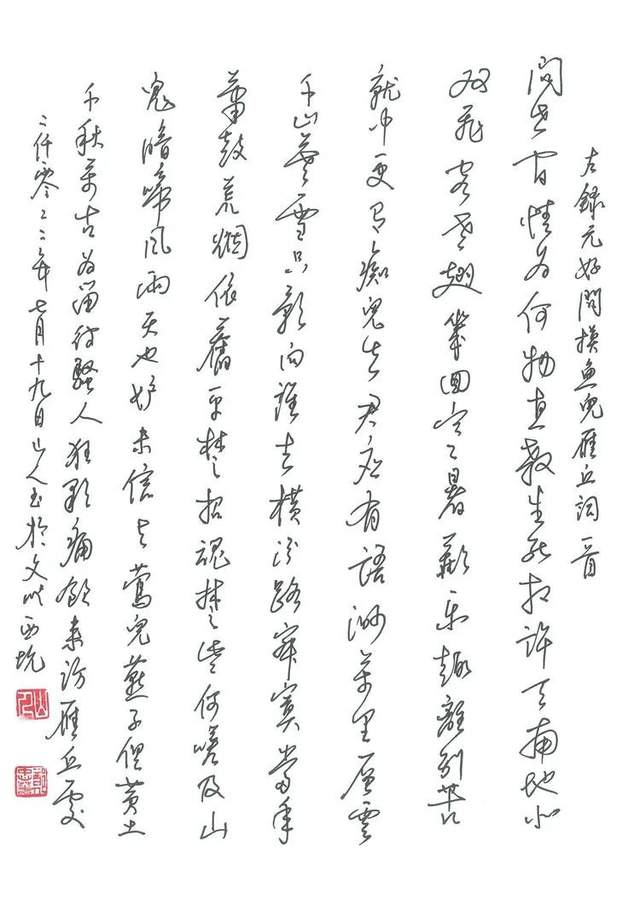 左錄元好問摸魚兒雁丘詞一首
問世間情為何物直教生死相許天南地北
双飛客老翅幾回寒暑歡樂趣離別苦
就中更有痴兒女君應有語渺萬里層雲
千山暮雪只影向誰去橫汾路寂寞當年
簫鼓荒烟依舊平楚招魂楚些何嗟及山
鬼暗啼風雨天也妒未信與鶯兒燕子俱黃土
千秋萬古為留待騷人狂歌痛飲來訪雁丘處
二仟零二二年七月十九日山人书於文西坑
山人